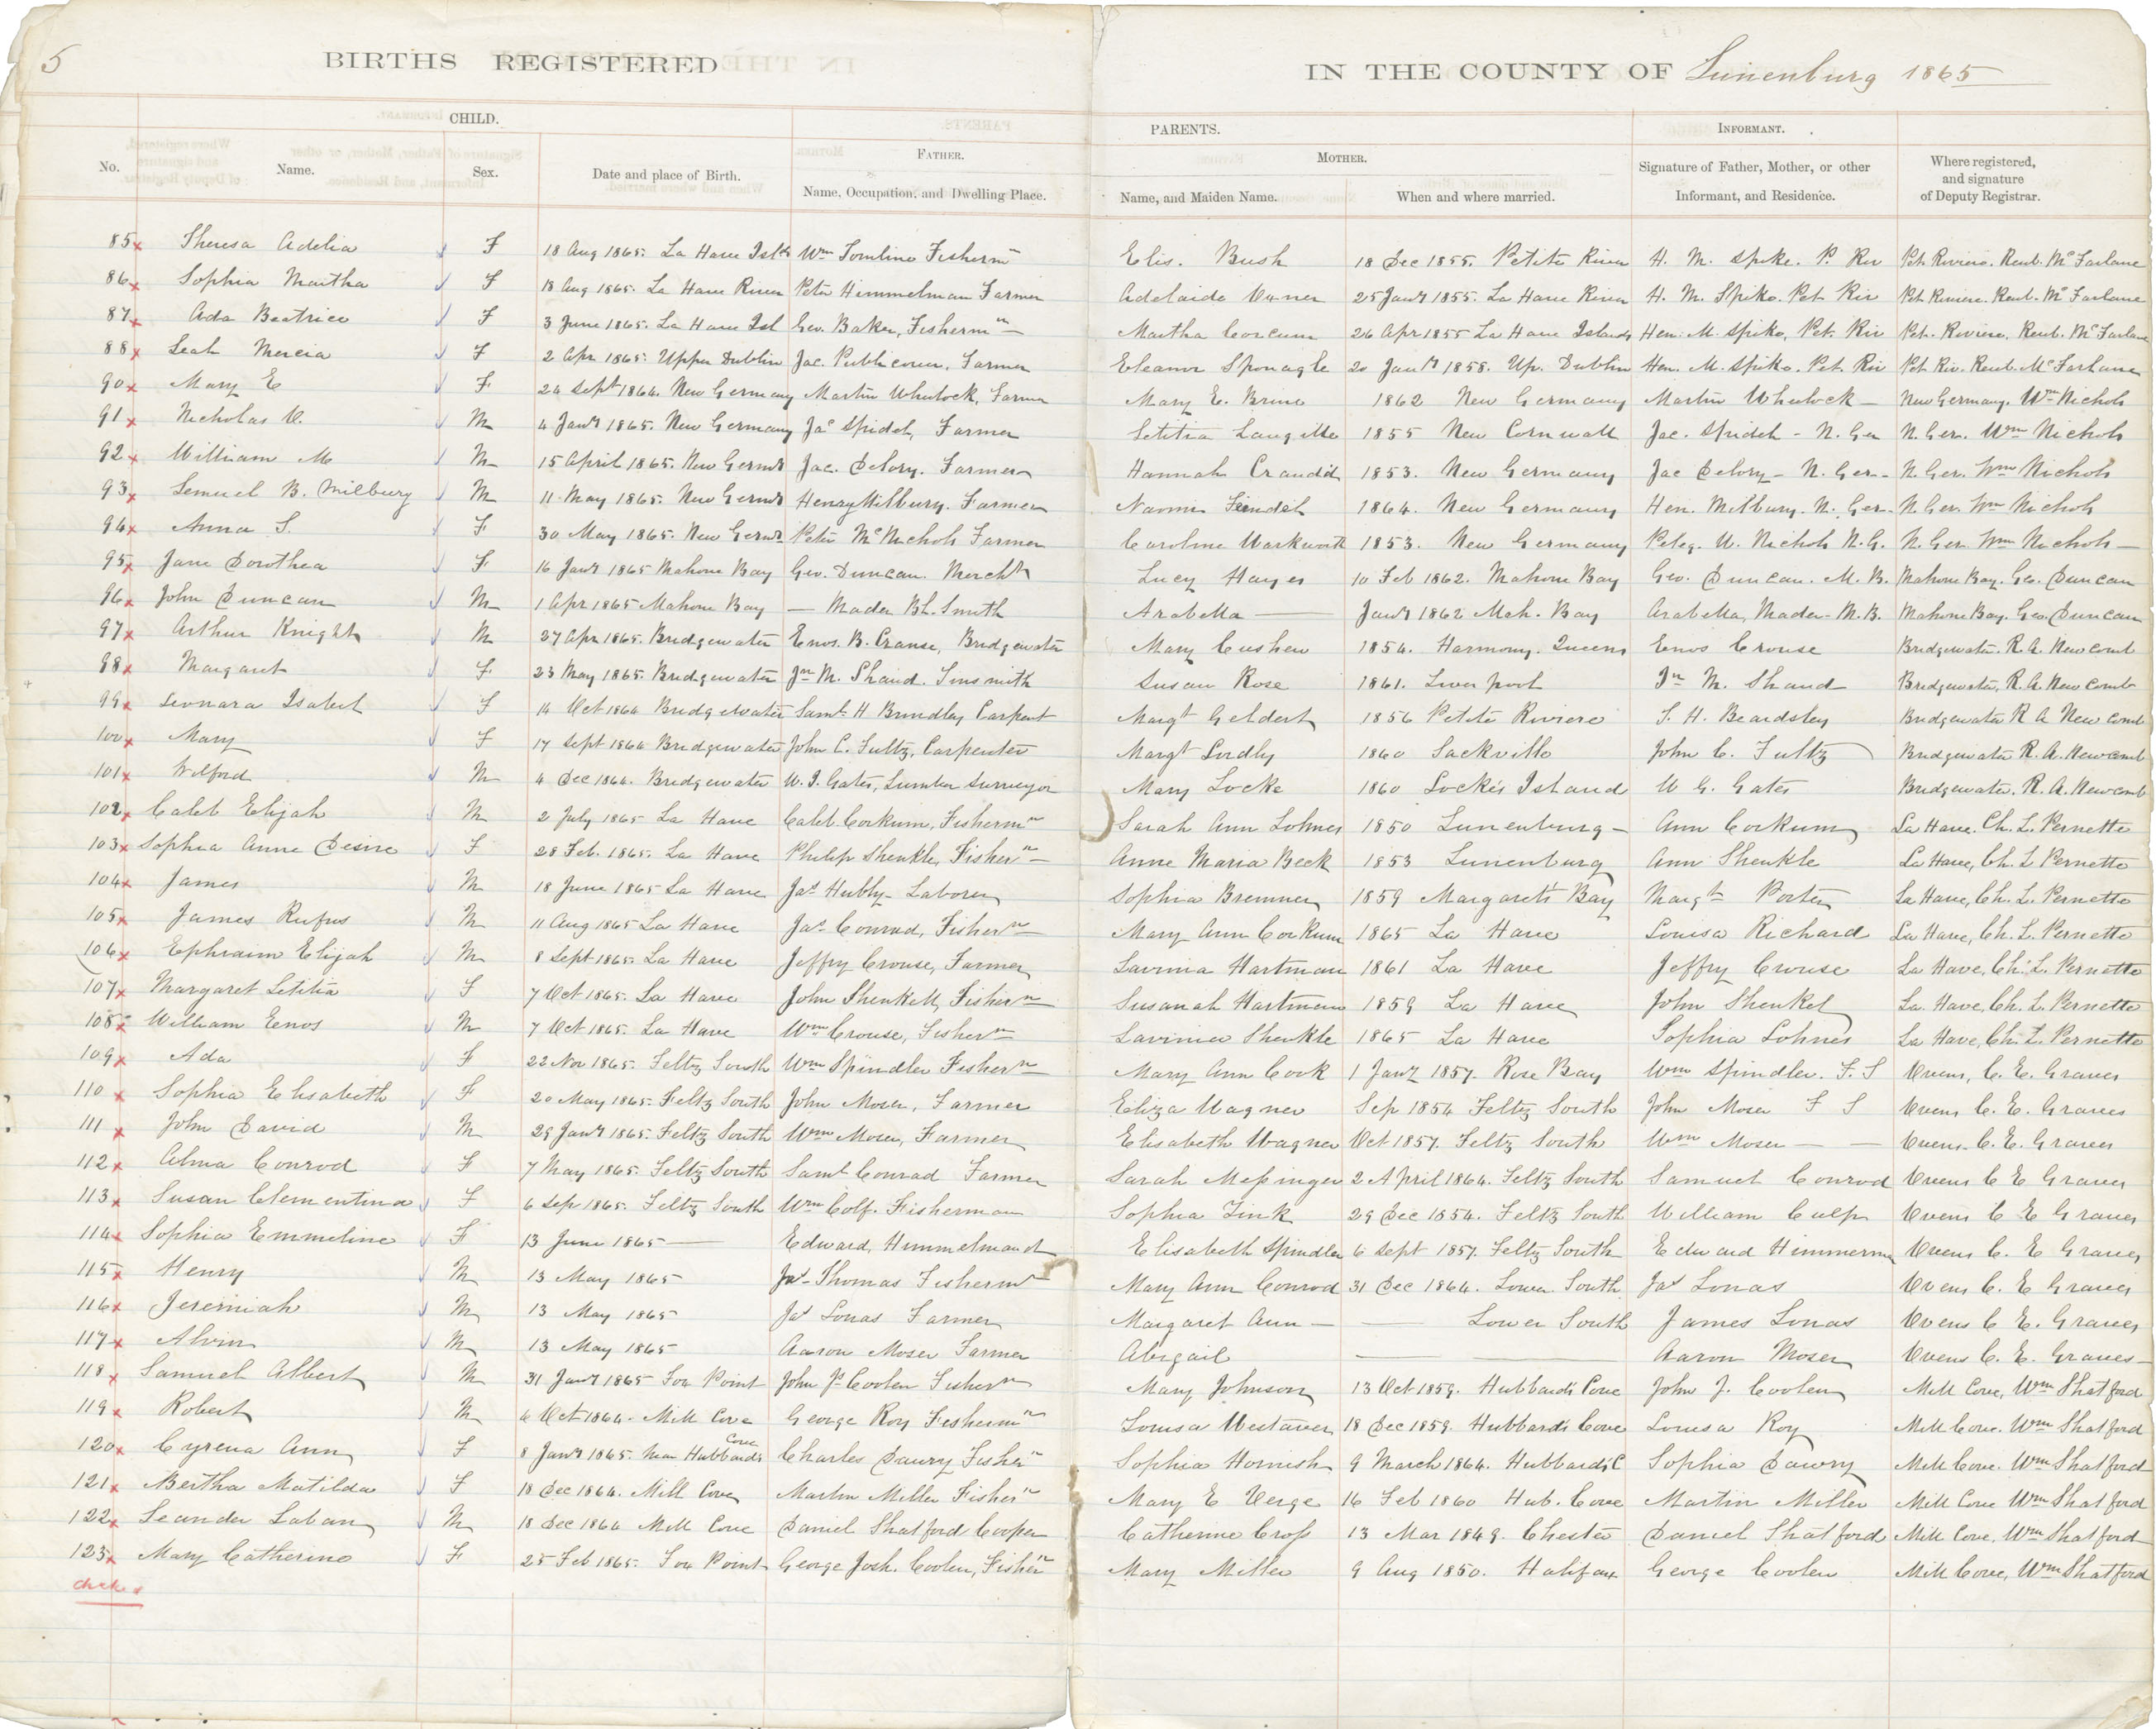 5
BIRTHS REGISTERED IN THE COUNTY OF Lunenburg 1865
CHILD. PARENTS. INFORMANT.
FATHER. MOTHER.
No. Name. Sex. Date and place of Birth. Name, Occupation, and Dwelling Place. Name, and Maiden Name. When and where married. Signature of Father, Mother, or other Informant, and Residence. Where registered, and signature of Deputy Registrar.
85 Theresa Adelia F 18 Aug 1865. La Have Islds Wm Fisherm Elis. Bush 18 Dec 1855. Petite River H. M. Spike. P. Riv Pet. Riviere. Reub. McFarlane
86 Sophia Martha F 18 Aug 1865. La Have River Peter Himmelman Farmer Adelaide 25 Jany 1855. La Have River H. M. Spike. Pet Riv Pet Riviere. Reub. McFarlane
87 Ada Beatrice F 3 June 1865. La Have Isl Geo. Baker, Fishermn Martha Corcum 26 Apr 1855 La Have Islands Hen. M. Spike, Pet. Riv Pet. Riviere, Reub. McFarlane
88 Leah Mercia F 2 Apr 1865. Upper Dublin Jac. Publicover, Farmer Eleanor Sponagle 20 Jany 1858. Up. Dublin Hen. M. Spike. Pet. Riv Pet Riv. Reub. McFarlane
90 Mary E F 24 Sept 1864. New Germany Martin Whelock, Farmer Mary E. 1862 New Germany Martin Whelock New Germany. Wm Nichols
91 Nicholas V. M 4 Jany 1865. New Germany Jac Spidel, Farmer Letitia Langille 1855 New Cornwall Jac. Spidel - N. Ger N. Ger. Wm Nichols
92 William M M 15 April 1865. New Germy Jac. Delory. Farmer Hannah 1853. New Germany Jac Delory - N. Ger - N. Ger. Wm Nichols
93 Lemuel B. Milbury M 11 May 1865. New Germy Henry Milbury. Farmer Naomi 1864. New Germany Hen. Milbury. N. Ger. N. Ger. Wm Nichols
94 Anna S. F 30 May 1865. New Germy Peter McNichols Farmer Caroline 1853. New Germany Peleg. W. Nichols N.G. N. Ger Wm Nichols
95 Jane Dorothea F 16 Jany 1865 Mahone Bay Geo. Duncan. Mercht Lucy Hayes 10 Feb 1862. Mahone Bay Geo. Duncan. M. B. Mahone Bay. Geo. Duncan
96 John Duncan M 1 Apr 1865 Mahone Bay — Mader Bl. Smith Arabella — Jany 1862 Mah. Bay Arabella, Mader - M.B. Mahone Bay. Geo. Duncan
97 Arthur Knight M 27 Apr 1865. Bridgewater Enos. B. Crause, Bridgewater Mary Cushen 1854. Harmony. Queens Enos Crouse Bridgewater. R. A. Newcomb
98 Margaret F 23 May 1865. Bridgewater Jn M. Shand. Tinsmith Susan Rose 1861. Liverpool Jn M. Shand Bridgewater, R. A. Newcomb
99 Leonara Isabel F 14 Oct 1864 Bridgewater Saml. H Carpent Margt Geldert 1856 Petite Riviere S. H. Beardsley Bridgewater R A Newcomb
100 Mary F 17 Sept 1864 Bridgewater John C. Fultz, Carpenter Margt Lordly 1860 Sackville John C. Fultz Bridgewater R. A. Newcomb
101 Wilford M 4 Dec 1864. Bridgewater W. G. Gates, Lumber Surveyor Mary Locke 1860 Locke's Island W G. Gates Bridgewater. R. A. Newcomb
102 Caleb Elijah M 2 July 1865 La Have Caleb Corkum, Fishermn Sarah Ann Lohnes 1850 Lunenburg - Ann Corkum La Have. Ch. L. Pernette
103 Sophia Anne Desire F 28 Feb. 1865. La Have Philip Shenkle, Fishern Anne Maria Beck 1853 Lunenburg Ann Shenkle La Have, Ch. L Pernette
104 James M 18 June 1865 La Have Jas Hubly - Laborer Sophia Bremner 1859 Margarets Bay Margt Porter La Have, Ch. L. Pernette
105 James Rufus M 11 Aug 1865 La Have Jas. Conrad, Fishern Mary Ann Corkum 1865 La Have Louisa Richard La Have, Ch. L. Pernette
106 Ephraim Elijah M 8 Sept 1865. La Have Jeffry Crouse, Farmer Lavinia Hartman 1861 La Have Jeffry Crouse La Have, Ch. L. Pernette
107 Margaret Letitia F 7 Oct 1865. La Have John Shenkell, Fishern Susanah Hartman 1859 La Have John Shenkel La Have, Ch. L. Pernette
108 William Eenos M 7 Oct 1865. La Have Wm Crouse, Fishern Lavinia Shenkle 1865 La Have Sophia Lohnes La Have, Ch. L. Pernette
109 Ada F 22 Nov 1865. Feltz South Wm Spindler Fishern Mary Ann Cook 1 Jany 1857. Rose Bay Wm Spindler. F. S Ovens, C. E. Graves
110 Sophia Elisabeth F 20 May 1865. Feltz South John Moser, Farmer Eliza Wagner Sep 1854 Feltz South John Moser F S Ovens C. E. Graves
111 John David M 29 Jany 1865. Feltz South Wm Moser, Farmer Elisabeth Wagner Oct 1857. Feltz South Wm Moser — Ovens. C. E. Graves
112 Alma Conrod F 7 May 1865. Feltz South Saml Conrad Farmer Sarah Messinger 2 April 1864. Feltz South Samuel Conrod Ovens C E Graves
113 Susan Clementina F 6 Sep 1865. Feltz South Wm Colp. Fisherman Sophia Zink 29 Dec 1854. Feltz South William Culp Ovens C E Graves
114 Sophia Emmeline F 13 June 1865 — Edward, Himmelman Elisabeth Spindler 6 Sept 1857. Feltz South Edward Himmerman Ovens C. E Graves
115 Henry M 13 May 1865 Jas. Thomas Fishermn Mary Ann Conrod 31 Dec 1864. Lower South. Jas Lonas Ovens C. E Graves
116 Jeremiah M 13 May 1865 Jas Lonas Farmer Margaret Ann — — Lower South James Lonas Ovens C. E. Graves
117 Alvin M 13 May 1865 Aaron Moser Farmer Abigail — Aaron Moser Ovens C. E. Graves
118 Samuel Albert M 31 Jany 1865 Fox Point John Js Coolen Fishern Mary Johnson 13 Oct 1859. Hubbards Cove John J. Coolen Mill Cove, Wm Shatford
119 Robert M 6 Oct 1864. Mill Cove George Roy Fishermn Louisa Westaver 18 Dec 1859. Hubbards Cove Louisa Roy Mill Cove. Wm Shatford
120 Cyrena Ann F 8 Jany 1865. Near Hubbards Cove Charles Daury Fishern Sophia Hornish 9 March 1864. Hubbards C Sophia Dawry Mill Cove. Wm Shatford
121 Bertha Matilda F 18 Dec 1864. Mill Cove Martin Miller Fishern Mary E Verge 16 Feb 1860 Hub. Cove Martin Miller Mill Cove Wm Shatford
122 Leander Laban M 18 Dec 1864 Mill Cove Daniel Shatford Cooper Catherine Cross 13 Mar 1849. Chester Daniel Shatford Mill Cove, Wm Shatford
123 Mary Catherine F 25 Feb 1865. Fox Point George Josh. Coolen, Fishern Mary Miller 9 Aug 1850. Halifax George Coolen Mill Cove, Wm Shatford